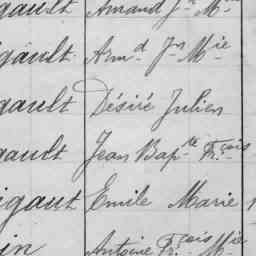 gault Amand Jn Mie
gault Armd Jn Mie
gault Désiré Julien
gault Jean Bapte Fçois
igaut Emile Marie
in Antoine Fçois Mie